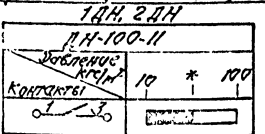 1ДН, 2ДН
ДН-100-11
Давление
кгс/м²
Контакты
10 * 100
1 3